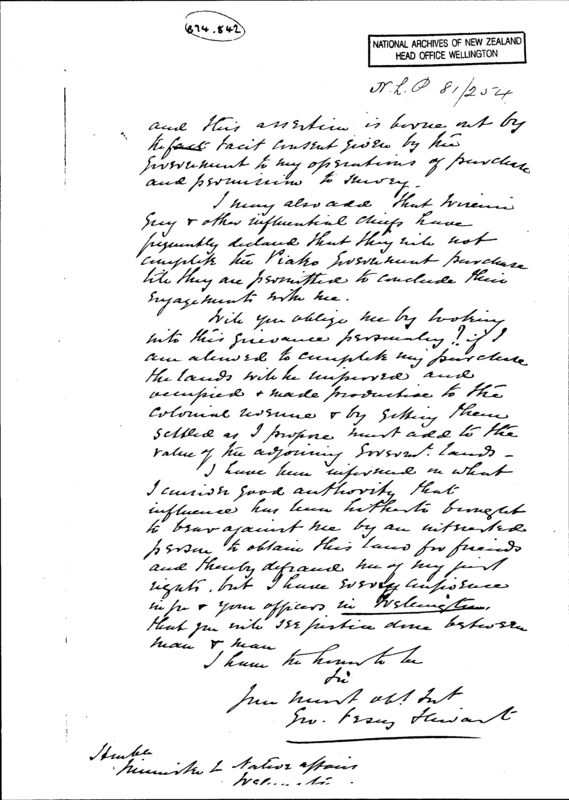 874.842
NATIONAL ARCHIVES OF NEW ZEALAND
HEAD OFFICE WELLINGTON
N.L.P 81/254
and this assertion is borne out by
the fact tacit consent given by the
Government to my operations of purchase
and permission to survey.
I may also add that Wiremu
& other influential chiefs have
frequently declared that they will not
complete the Piako Government purchase
till they are permitted to conclude their
engagements with me.
Will you oblige me by looking
into this grievance personally? if I
am allowed to complete my purchase
the lands will be improved and
occupied & made productive to the
Colonial revenue & by getting them
settled as I propose must add to the
value of the adjoining Governt. lands -
I have been informed on what
I consider good authority that
influence has been hitherto brought
to bear against me by an interested
person to obtain this land for friends
and thereby defraud me of my just
rights, but I have every confidence
in you & your officers in Wellington,
that you will see justice done between
man & man
I have the honor to be
Sir
Your most obt Svt
Geo. Vesey Stewart
Honble
Minister of Native affairs
Wellington